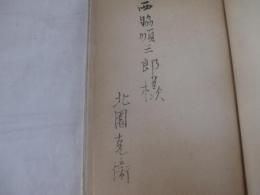 西脇順三郎様
北園克衛